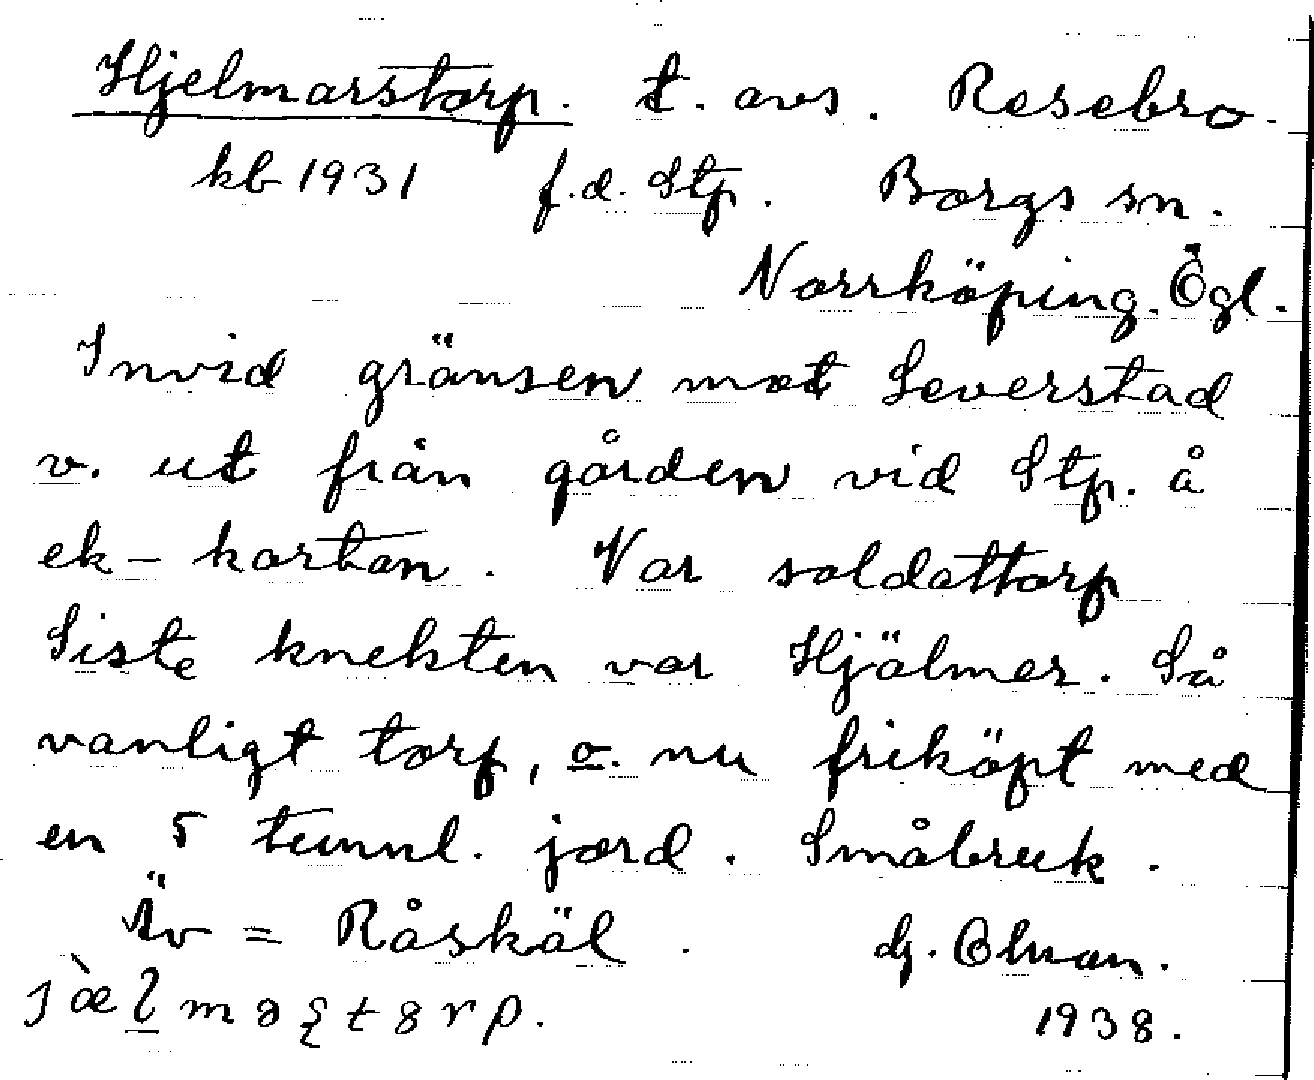 Hjelmarstorp. t. avs. Resebro.
kb 1931 f.d. Stp. Borgs sn.
Norrköping. Ögl.
Invid gränsen mot Leverstad
v. ut från gården vid Stp. å
ek-kartan. Var soldattorp
Siste knekten var Hjälmer. Så
vanligt torp, o. nu friköpt med
en 5 tunnl. jord. Småbruk.
Äv = Råskäl. Hj. Ohman.
1938.